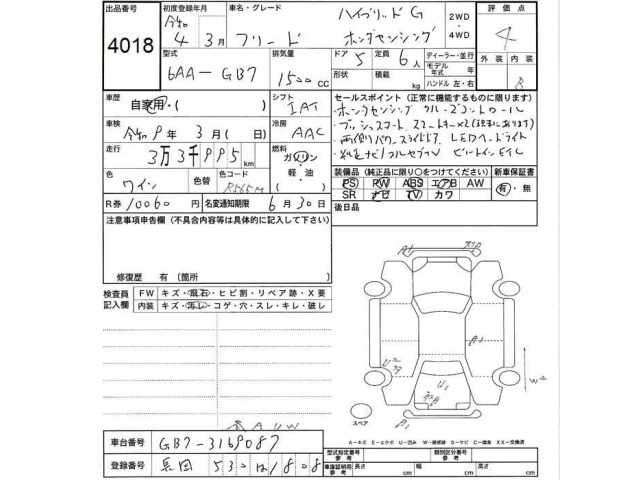 出品番号 初度登録年月 車名・グレード 評価点
4018 令和 4年 3月 フリード ハイブリッド G ホンダセンシング 2WD・4WD 4
型式 排気量 ドア 定員 ディーラー・並行 外装 内装
6AA-GB7 1500cc 5 6人 モデル年式 年 B
形状 積載 kg ハンドル 左・右
車歴 自家用・( ) シフト IAT
セールスポイント(正常に機能するものに限ります)
・ホンダセンシング クルーズコントロール
車検 令和 9年 3月( 日) 冷房 AAC
・プッシュスタート スマートキー×2
・両側パワースライドドア LEDヘッドライト
走行 3万3千995km 燃料 ガソリン・軽油・( )
・純正ナビ フルセグTV ビルトインETC
色 ワイン 色替 色コード R565M
装備品(純正品に限り○をつけてください) 新車保証書
PS PW ABS エアB AW 有・無
SR ナビ TV カワ
R券 10060円 名変通知期限 6月30日
後日品
注意事項申告欄(不具合内容等は具体的に記入して下さい)
修復歴 有(箇所 )
検査員記入欄 FW キズ・飛石・ヒビ割・リペア跡・X要
内装 キズ・汚レ・コゲ・穴・スレ・キレ・破レ
A1
A1
U1
W2
スペア
A1
A-キズ E-エクボ U-凹み W-補修跡 S-サビ C-腐食 XX-交換済
車台番号 GB7-3169087
型式指定番号 類別区分番号
登録番号 530 1808
車連証明用参考 長さ cm 幅 cm 高さ cm